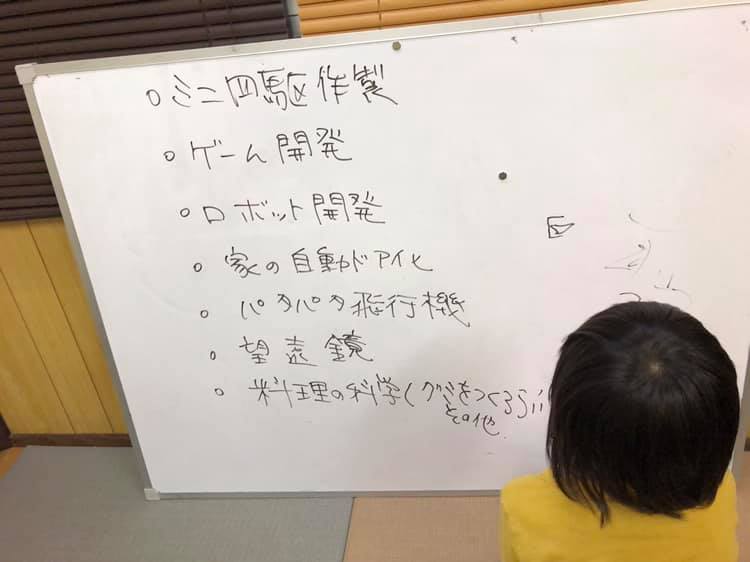 ○ ミニ四駆作製
○ ゲーム開発
○ ロボット開発
○ 家の自動ドア化
○ パタパタ飛行機
○ 望遠鏡
○ 料理の科学(グミをつくろう
その他